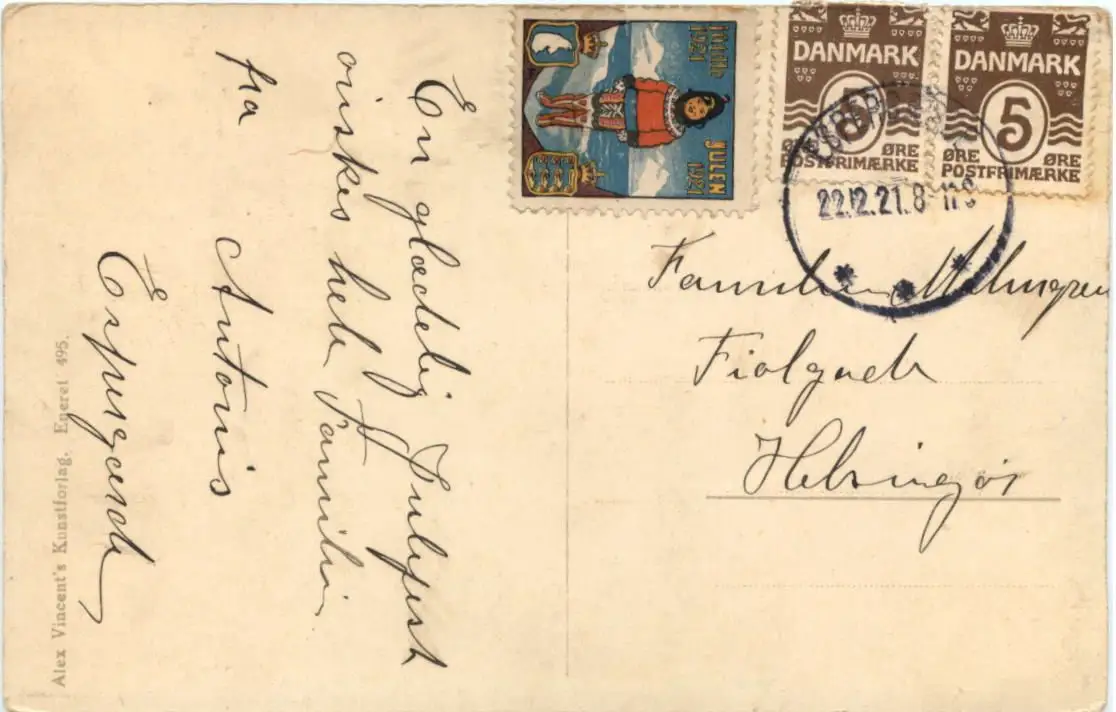 En glædelig Julefest
ønskes hele Familien
fra Antonis
Espergærde
Alex Vincent's Kunstforlag. Eneret 495.
JULEN
1921
1921
DANMARK
5
ØRE ØRE
POSTFRIMÆRKE
DANMARK
5
ØRE ØRE
POSTFRIMÆRKE
22.12.21.8
Familien Malmgren
Fiolgade
Helsingør